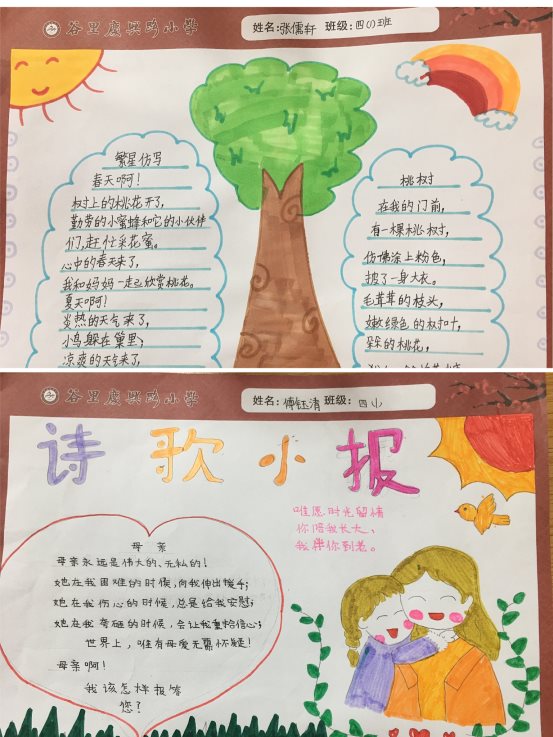 谷里庆兴路小学
姓名:张儒轩 班级:四(1)班
繁星仿写
春天啊!
树上的桃花开了,
勤劳的小蜜蜂和它的小伙伴
们,赶忙采花蜜。
心中的春天来了,
我和妈妈一走己欣赏桃花。
夏天啊!
炎热的天气来了,
小鸟躲在巢里;
凉爽的天气来了,
桃树
在我的门前,
有一棵桃树,
仿佛涂上粉色,
披了一身大衣。
毛茸茸的枝头,
嫩绿色的树叶,
朵的桃花,
姓名:傅钰清 班级:四
诗歌小报
唯愿时光留情
你陪我长大,
我伴你到老。
母亲
母亲永远是伟大的、无私的!
她在我困难的时候,向我伸出援手;
她在我伤心的时候,总是给我安慰;
她在我考砸的时候,会让我重拾信心;
世界上,唯有母爱无需怀疑!
母亲啊!
我该怎样报答
您?